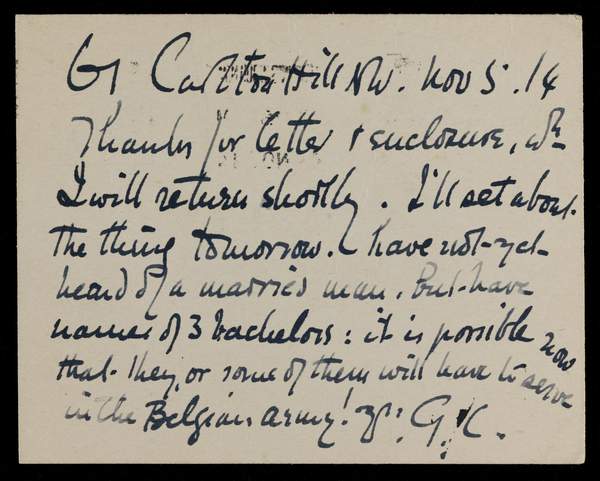 61 Carlton Hill NW. Nov 5. 14
Thanks for letter & enclosure, wh
I will return shortly. I'll set about
the thing tomorrow. I have not yet
heard of a married man, but have
names of 3 bachelors: it is possible now
that they, or some of them will have to serve
in the Belgian army! Yrs G.C.